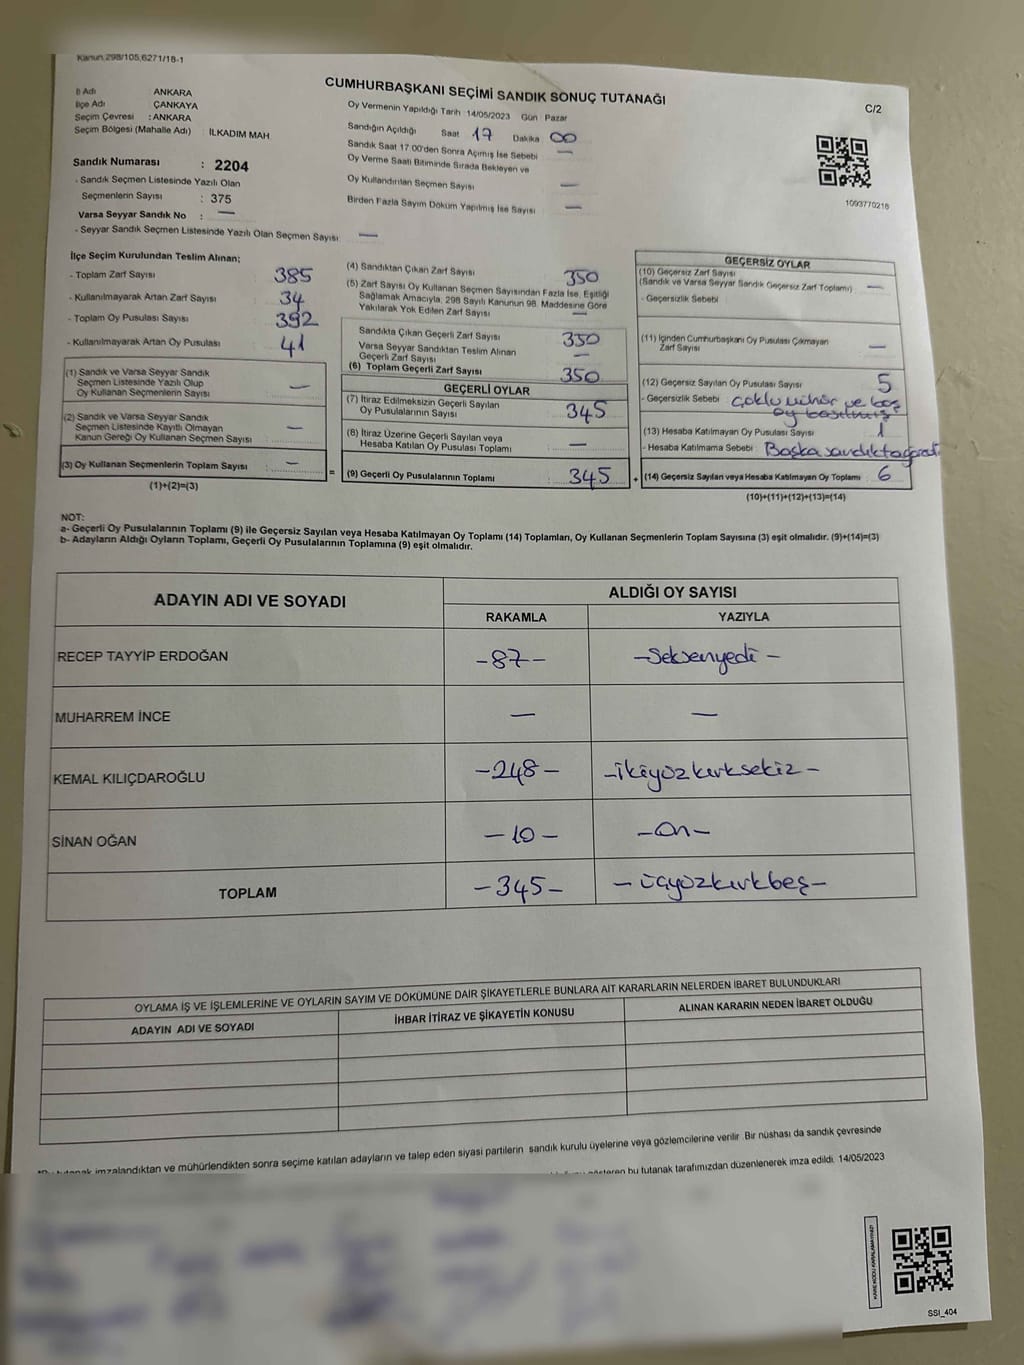 Kanun,298/105,6271/18-1
CUMHURBAŞKANI SEÇİMİ SANDIK SONUÇ TUTANAĞI
C/2
İl Adı ANKARA
İlçe Adı ÇANKAYA
Seçim Çevresi : ANKARA
Seçim Bölgesi (Mahalle Adı) : İLKADIM MAH
Sandık Numarası : 2204
- Sandık Seçmen Listesinde Yazılı Olan
Seçmenlerin Sayısı : 375
Varsa Seyyar Sandık No : —
- Seyyar Sandık Seçmen Listesinde Yazılı Olan Seçmen Sayısı —
Oy Vermenin Yapıldığı Tarih : 14/05/2023 Gün : Pazar
Sandığın Açıldığı Saat 17 Dakika 00
Sandık Saat 17:00'den Sonra Açımış İse Sebebi —
Oy Verme Saati Bitiminde Sırada Bekleyen ve
Oy Kullandırılan Seçmen Sayısı —
Birden Fazla Sayım Döküm Yapılmış İse Sayısı —
1093770218
İlçe Seçim Kurulundan Teslim Alınan;
- Toplam Zarf Sayısı 385
- Kullanılmayarak Artan Zarf Sayısı 34
- Toplam Oy Pusulası Sayısı 392
- Kullanılmayarak Artan Oy Pusulası 41
(1) Sandık ve Varsa Seyyar Sandık
Seçmen Listesinde Yazılı Olup
Oy Kullanan Seçmenlerin Sayısı : —
(2) Sandık ve Varsa Seyyar Sandık
Seçmen Listesinde Kayıtlı Olmayan
Kanun Gereği Oy Kullanan Seçmen Sayısı : —
(3) Oy Kullanan Seçmenlerin Toplam Sayısı : — =
(1)+(2)=(3)
(4) Sandıktan Çıkan Zarf Sayısı 350
(5) Zarf Sayısı Oy Kullanan Seçmen Sayısından Fazla İse, Eşitliği
Sağlamak Amacıyla, 298 Sayılı Kanunun 98. Maddesine Göre
Yakılarak Yok Edilen Zarf Sayısı —
Sandıkta Çıkan Geçerli Zarf Sayısı 350
Varsa Seyyar Sandıktan Teslim Alınan
Geçerli Zarf Sayısı —
(6) Toplam Geçerli Zarf Sayısı 350
GEÇERLİ OYLAR
(7) İtiraz Edilmeksizin Geçerli Sayılan
Oy Pusulalarının Sayısı 345
(8) İtiraz Üzerine Geçerli Sayılan veya
Hesaba Katılan Oy Pusulası Toplamı —
(9) Geçerli Oy Pusulalarının Toplamı : 345 +
GEÇERSİZ OYLAR
(10) Geçersiz Zarf Sayısı
(Sandık ve Varsa Seyyar Sandık Geçersiz Zarf Toplamı) —
- Geçersizlik Sebebi
(11) İçinden Cumhurbaşkanı Oy Pusulası Çıkmayan
Zarf Sayısı —
(12) Geçersiz Sayılan Oy Pusulası Sayısı 5
- Geçersizlik Sebebi çoklu mühür ve boş
oy basılmış
(13) Hesaba Katılmayan Oy Pusulası Sayısı 1
- Hesaba Katılmama Sebebi Başka sandıkta
(14) Geçersiz Sayılan veya Hesaba Katılmayan Oy Toplamı 6
(10)+(11)+(12)+(13)=(14)
NOT:
a- Geçerli Oy Pusulalarının Toplamı (9) ile Geçersiz Sayılan veya Hesaba Katılmayan Oy Toplamı (14) Toplamları, Oy Kullanan Seçmenlerin Toplam Sayısına (3) eşit olmalıdır. (9)+(14)=(3)
b- Adayların Aldığı Oyların Toplamı, Geçerli Oy Pusulalarının Toplamına (9) eşit olmalıdır.
ADAYIN ADI VE SOYADI ALDIĞI OY SAYISI
RAKAMLA YAZIYLA
RECEP TAYYİP ERDOĞAN -87- -Seksenyedi-
MUHARREM İNCE — —
KEMAL KILIÇDAROĞLU -248- -ikiyüzkırksekiz-
SİNAN OĞAN -10- -On-
TOPLAM -345- -üçyüzkırkbeş-
OYLAMA İŞ VE İŞLEMLERİNE VE OYLARIN SAYIM VE DÖKÜMÜNE DAİR ŞİKAYETLERLE BUNLARA AİT KARARLARIN NELERDEN İBARET BULUNDUKLARI
ADAYIN ADI VE SOYADI İHBAR İTİRAZ VE ŞİKAYETİN KONUSU ALINAN KARARIN NEDEN İBARET OLDUĞU
tutanak imzalandıktan ve mühürlendikten sonra seçime katılan adayların ve talep eden siyasi partilerin sandık kurulu üyelerine veya gözlemcilerine verilir. Bir nüshası da sandık çevresinde
gösteren bu tutanak tarafımızdan düzenlenerek imza edildi. 14/05/2023
KARE KODU KARALAMAYINIZ!
SSI_404